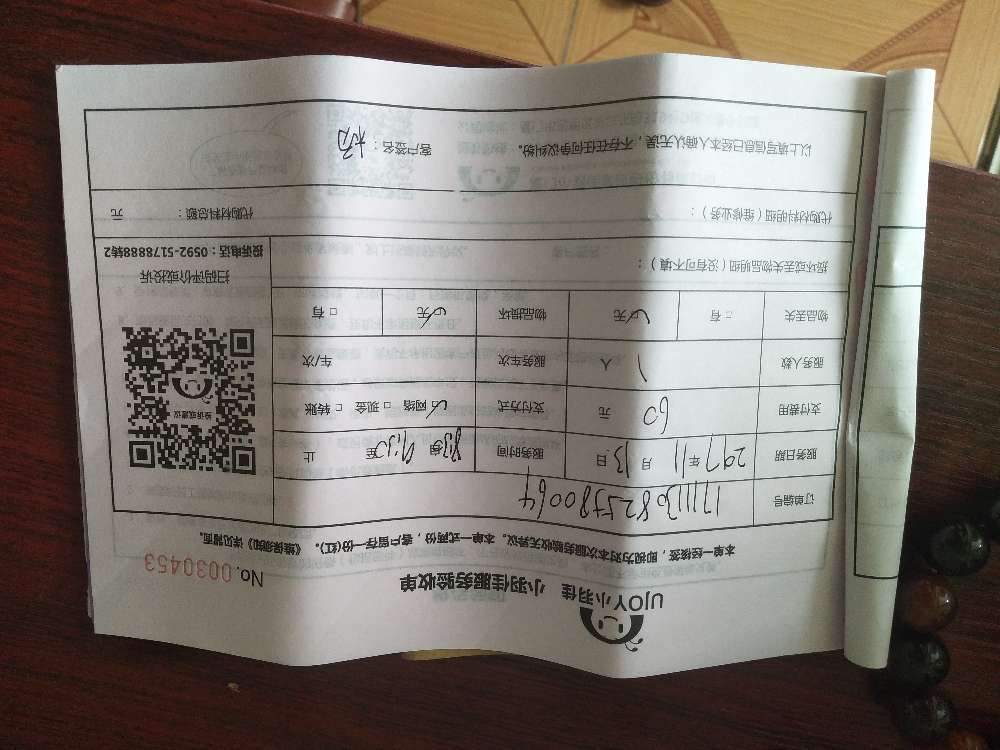 UJOY小羽佳 小羽佳服务验收单 No. 0030453
本单一经接签，即视为对本次服务验收无异议。本单一式两份，客户留存一份(红)。《维保须知》详见背面。
订单编号
服务日期 2017 年 11 月 13 日 服务时间 至 止
支付费用 60 元 支付方式 ☑网络 □现金 □转账
服务人数 1 人 服务车次 车/次
物品丢失 □有 ☑无 物品损坏 ☑无 □有
投诉或建议
扫码评价或投诉
投诉电话：0592-5178888转2
损坏或丢失物品明细（没有可不填）：
代购材料明细（维修业务）： 代购材料总额： 元
以上填写信息已经本人确认无误，不存在任何争议纠纷。 客户签名：杨